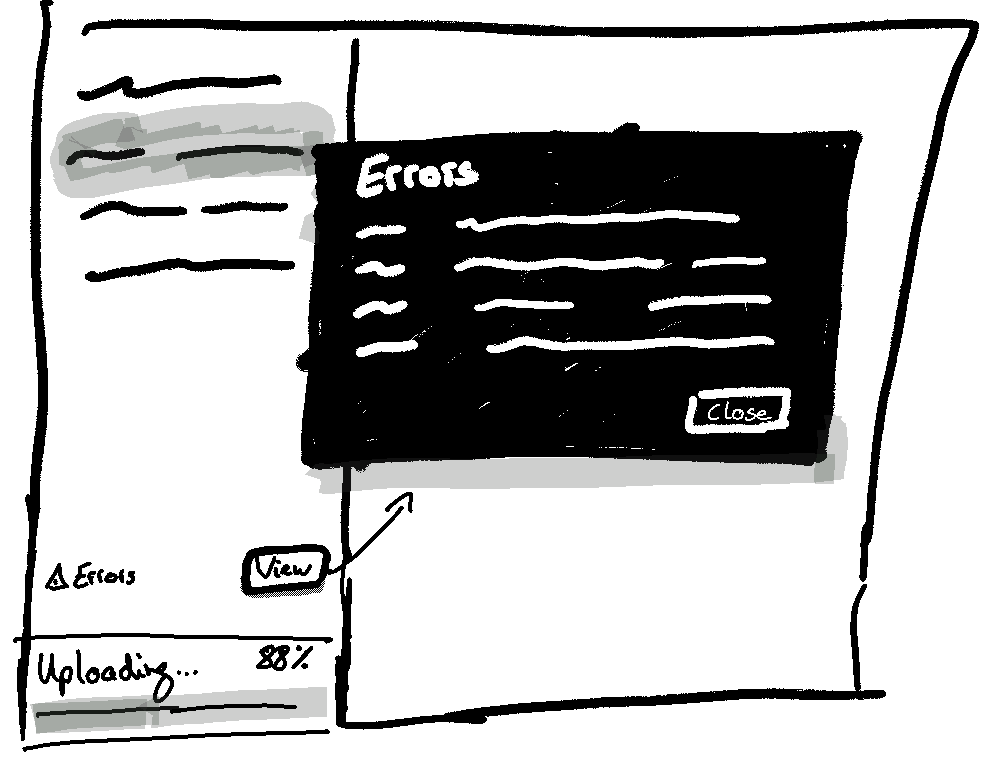 Errors
Close
⚠ Errors
View
Uploading... 88%